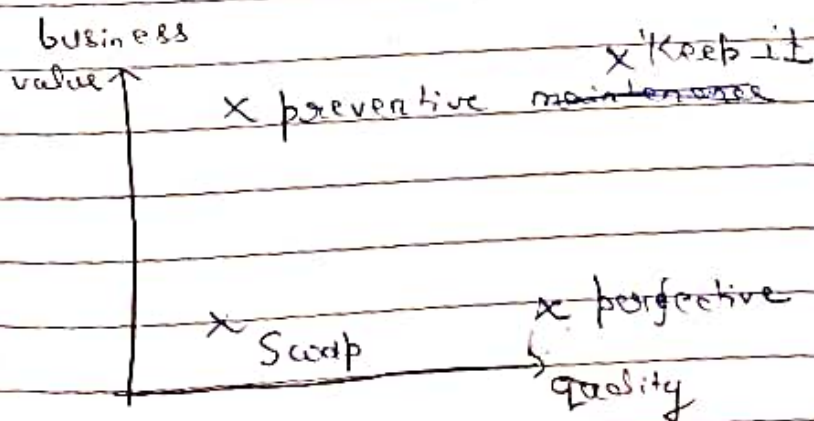 business
value
x Keep it
x preventive maintenance
x perfective
x Scrap
quality